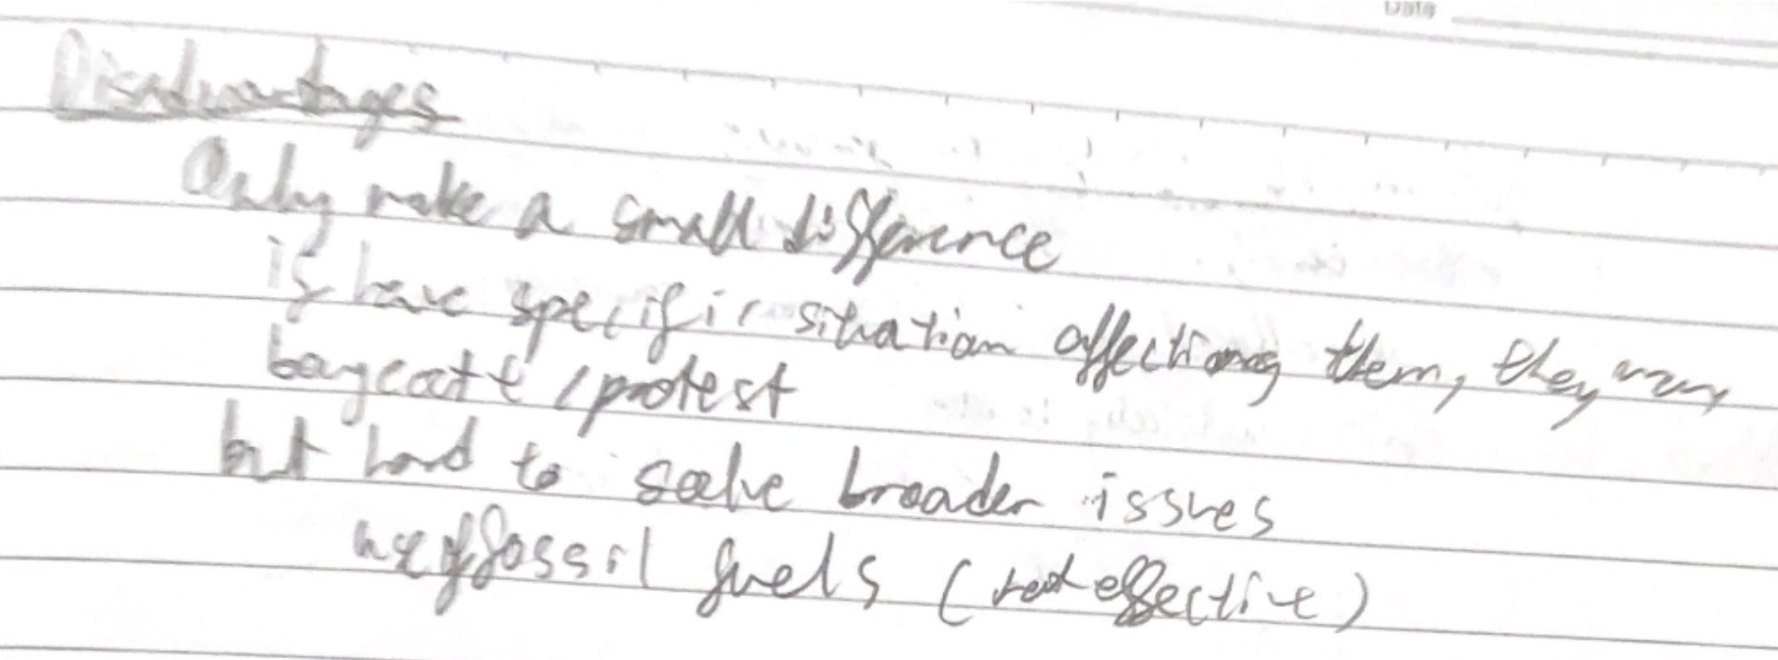 Date
Disadvantages
Only make a small difference
if have specific situation affecting them, they may
boycott / protest
but hard to solve broader issues
use of fossil fuels (not effective)